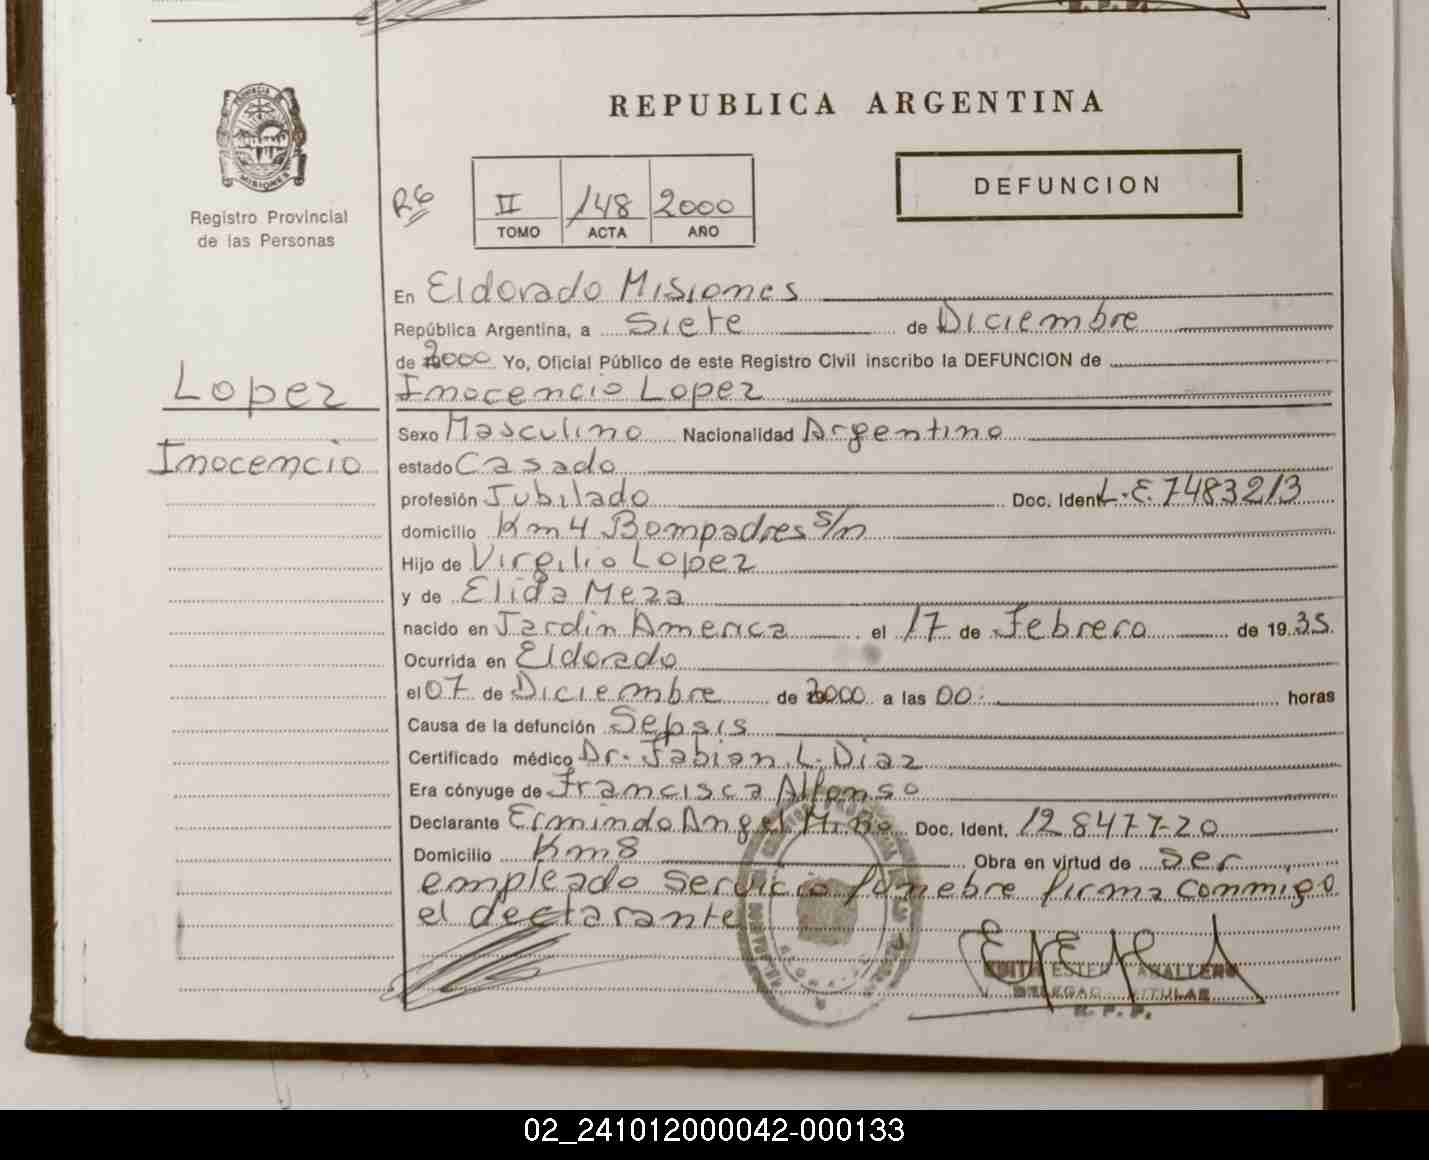 REPUBLICA ARGENTINA
PROVINCIA DE MISIONES
Registro Provincial
de las Personas
R6
II 148 2000
TOMO ACTA AÑO
DEFUNCION
En Eldorado Misiones
República Argentina, a Siete de Diciembre
de 2000 Yo, Oficial Público de este Registro Civil inscribo la DEFUNCION de
Lopez
Inocencio
Inocencio Lopez
Sexo Masculino Nacionalidad Argentino
estado Casado
profesión Jubilado Doc. Ident. L.E. 7483213
domicilio Km 4 Bompadres s/n
Hijo de Virgilio Lopez
y de Elida Meza
nacido en Jardin America el 17 de Febrero de 1935
Ocurrida en Eldorado
el 07 de Diciembre de 2000 a las 00 horas
Causa de la defunción Sepsis
Certificado médico Dr. Fabian L. Diaz
Era cónyuge de Francisca Alfonso
Declarante Ermindo Angel Doc. Ident. 128477-20
Domicilio Km 8 Obra en virtud de ser
empleado servicio fúnebre firma conmigo
el declarante
ESTER
TITULAR
R. P. P.
02_241012000042-000133